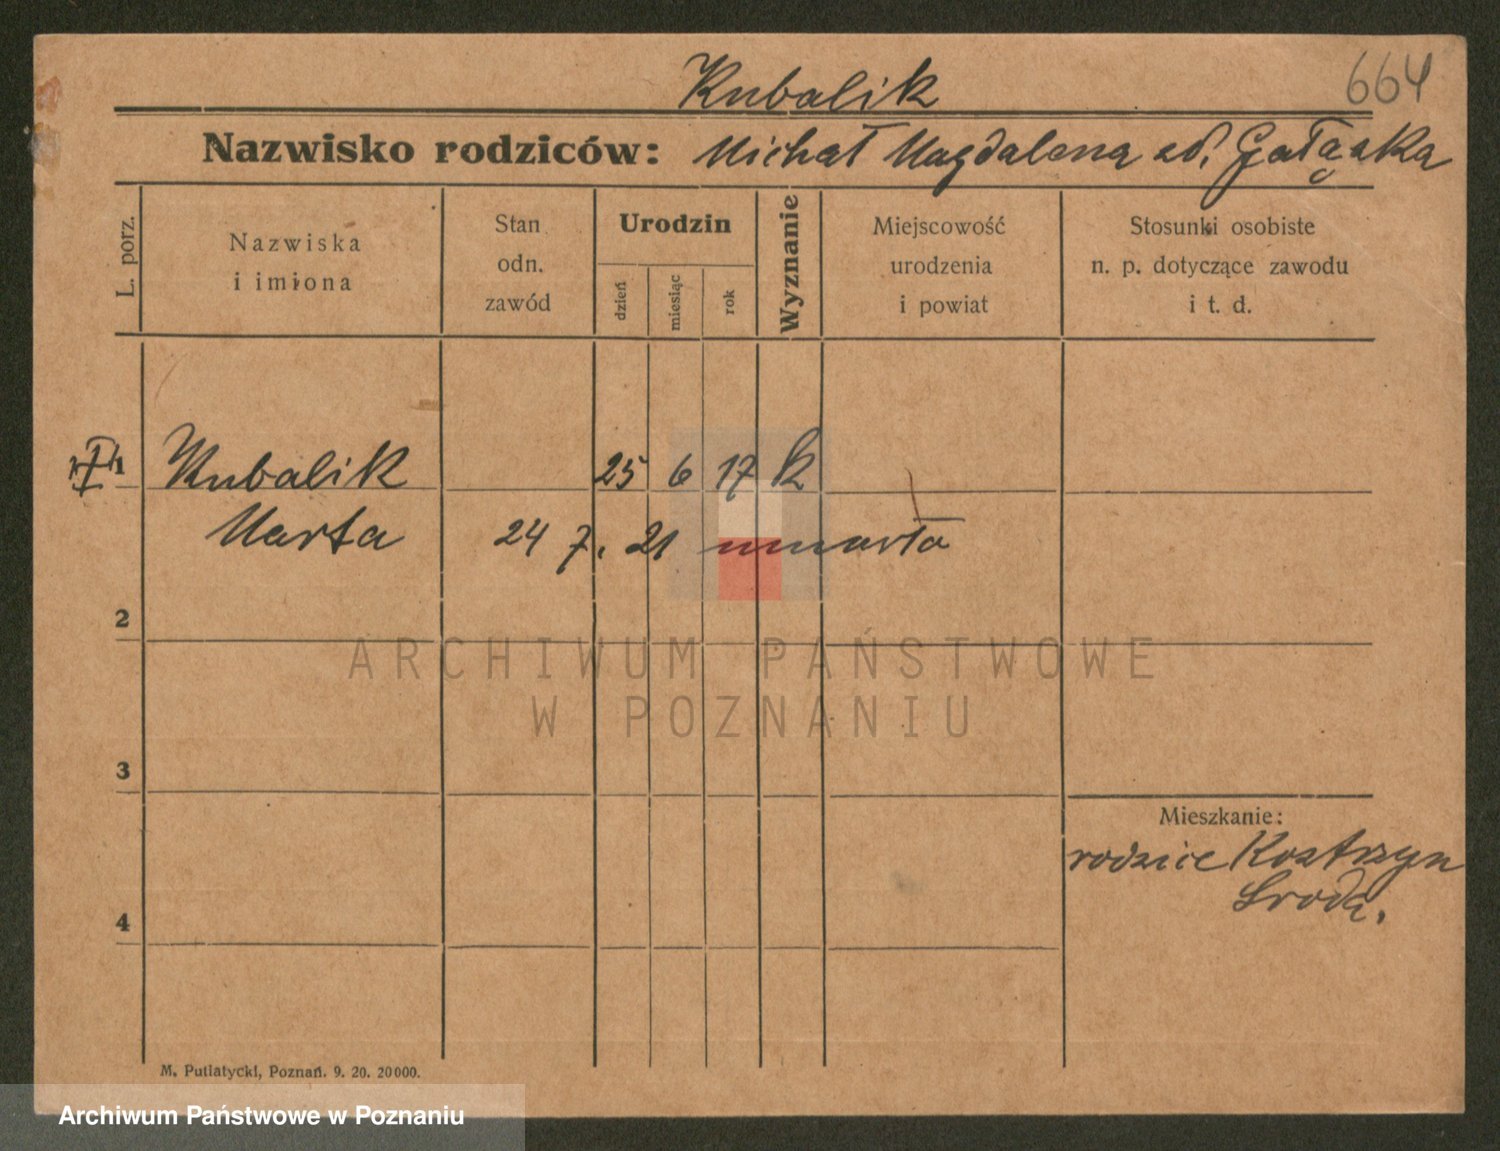 Kubalik
664
Nazwisko rodziców: Michał Magdalena zd. Gałązka
L. porz.
Nazwiska
i imiona
Stan
odn.
zawód
Urodzin
dzień
miesiąc
rok
Wyznanie
Miejscowość
urodzenia
i powiat
Stosunki osobiste
n. p. dotyczące zawodu
i t. d.
1 Kubalik 25 6 17 k
Marta 24 7. 21 umarła
2
ARCHIWUM PAŃSTWOWE
W POZNANIU
3
Mieszkanie:
rodzice Kostrzyn
Sroda.
4
M. Putiatycki, Poznań. 9. 20. 20000.
Archiwum Państwowe w Poznaniu